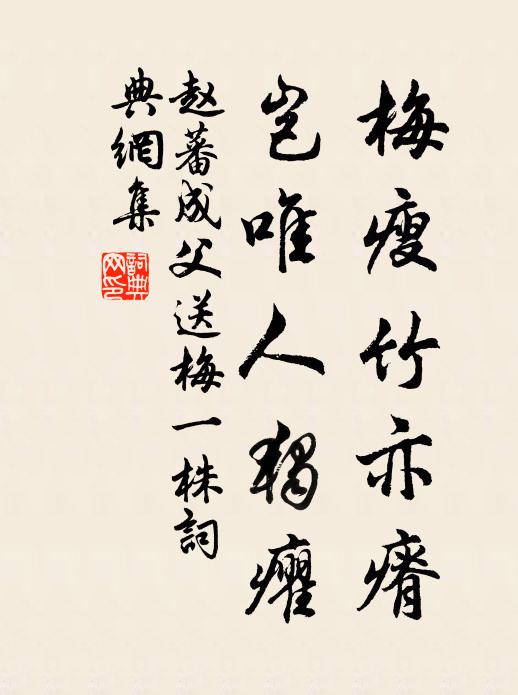 梅瘦竹亦瘠
岂唯人独癯
赵蕃成父送梅一株詞
典網集
詞典网印